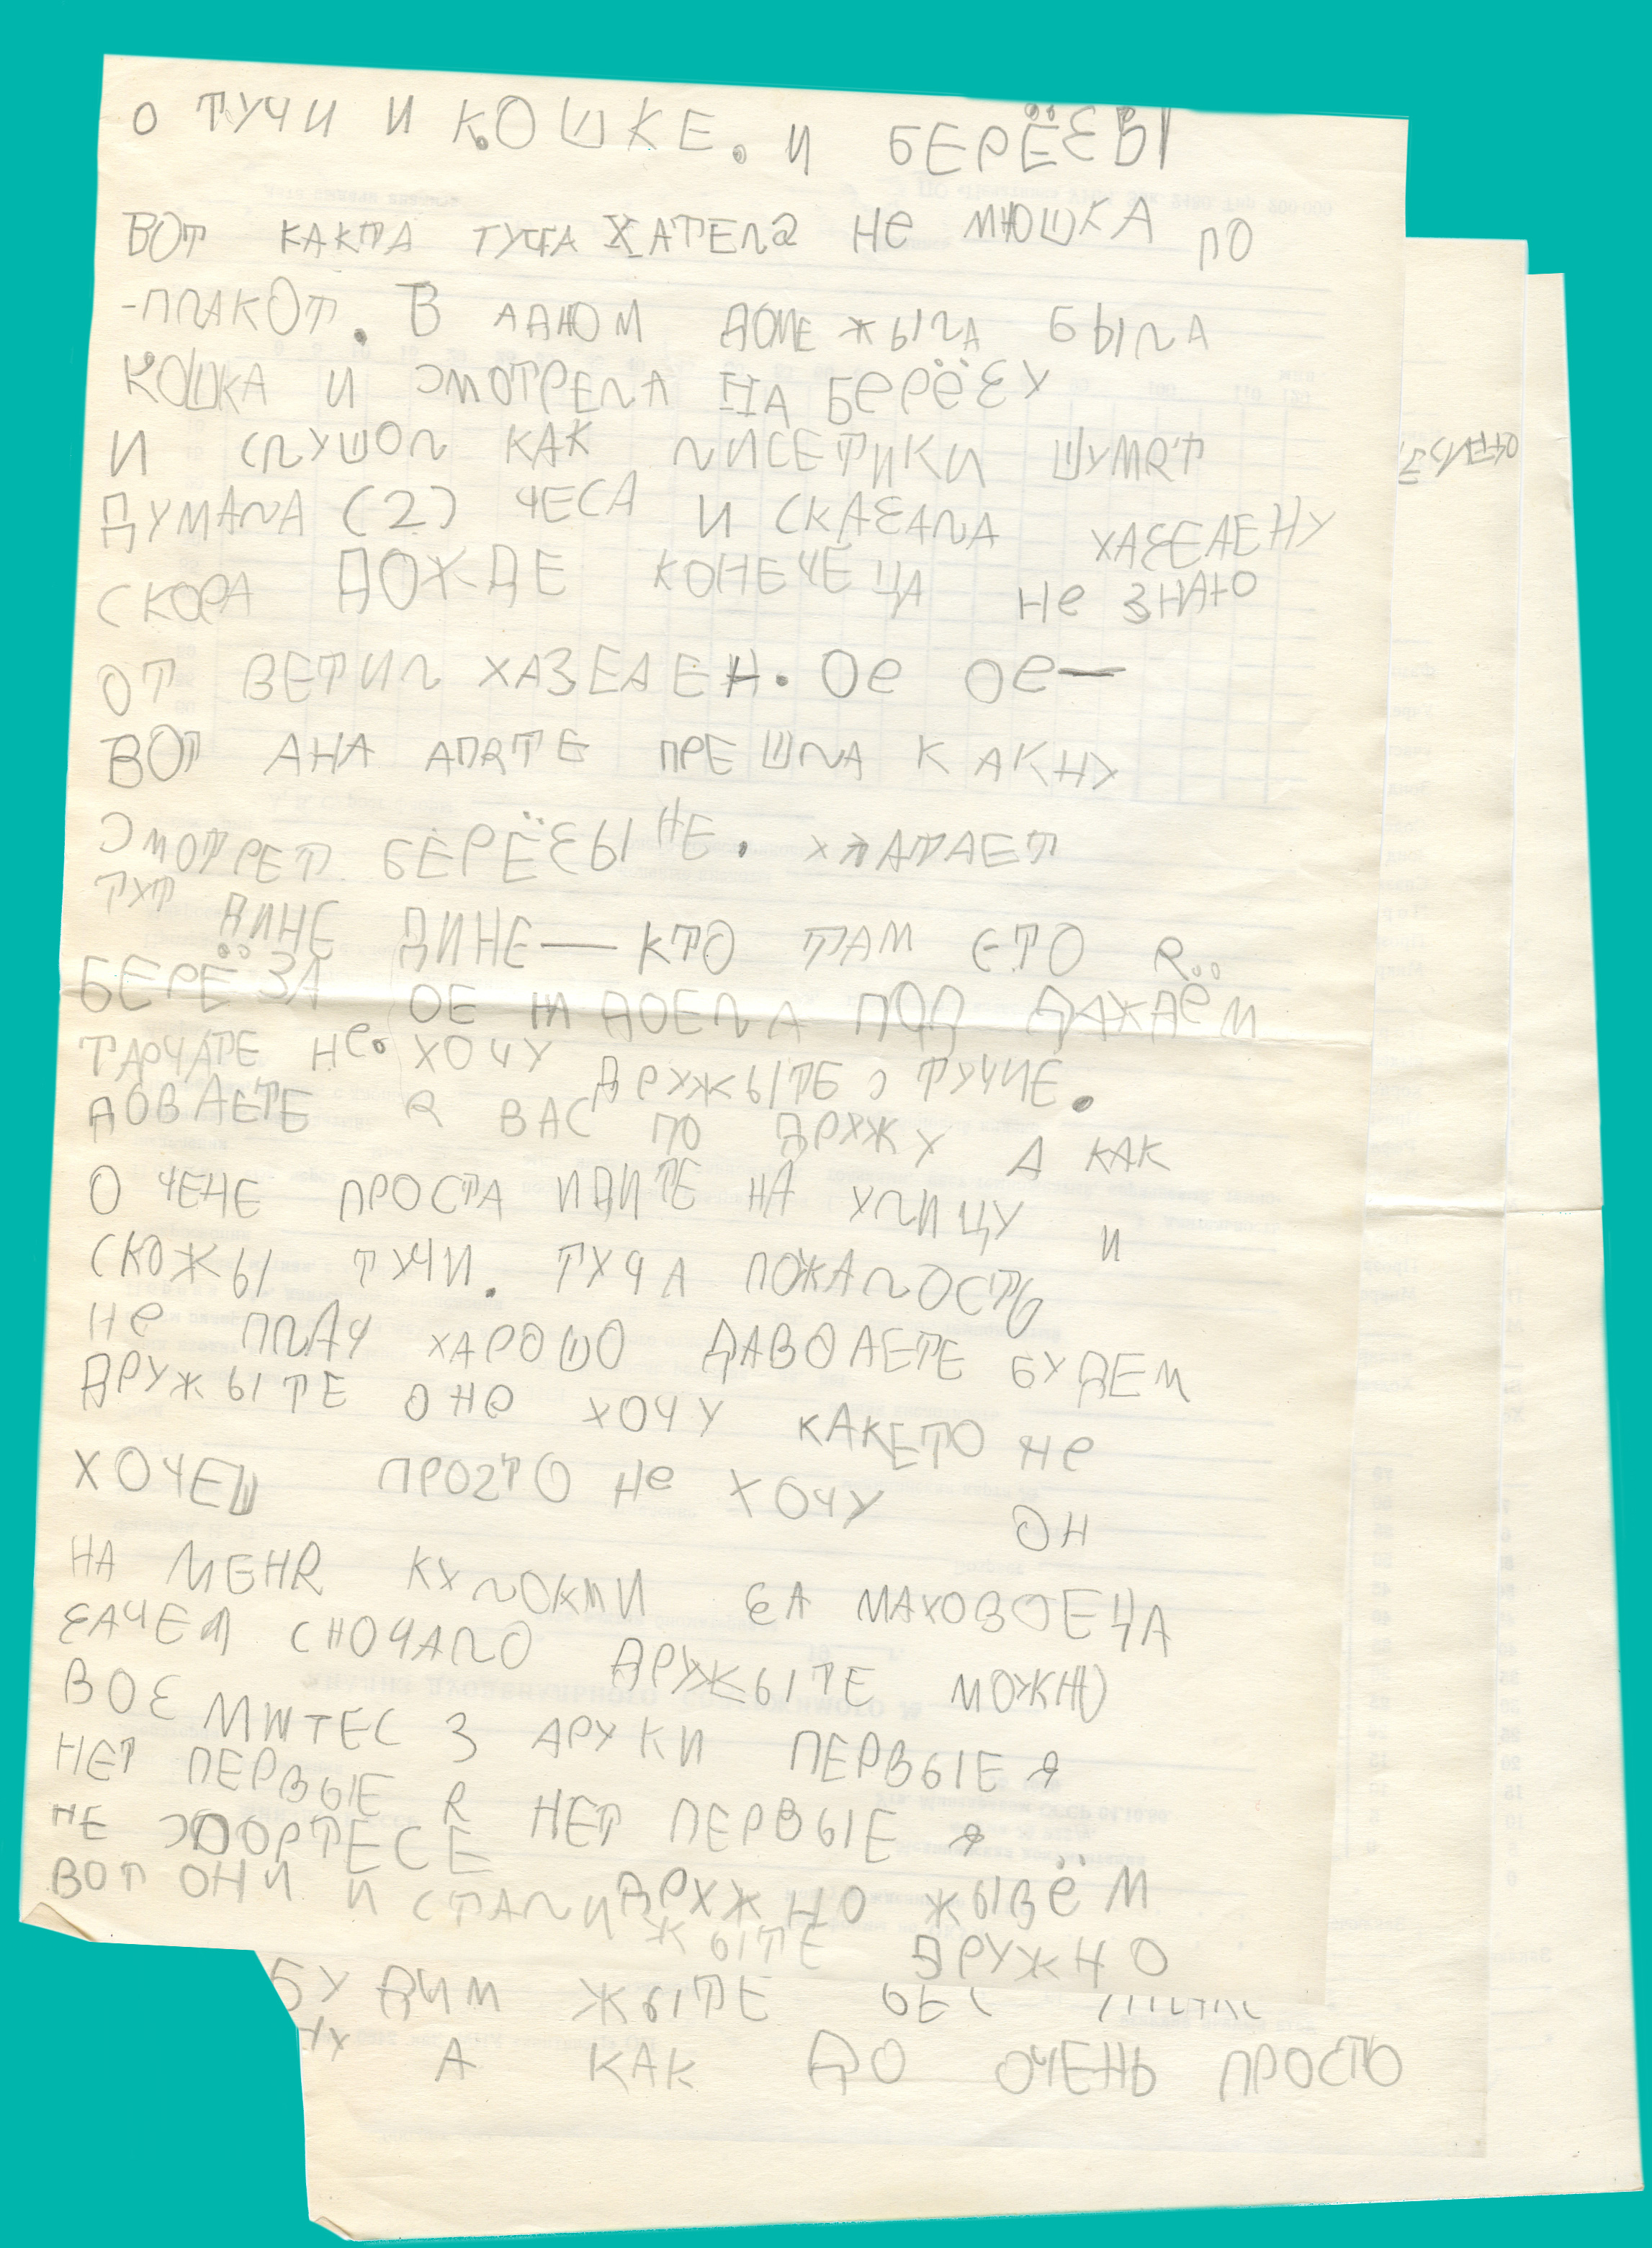 О ТУЧИ И КОШКЕ. И БЕРЁЗЫ
ВОТ КАКТА ТУЧА ХАТЕЛА НЕ МЮШКА ПО
-ПЛАКОТ. В АДНОМ ДОМЕ ЖЫЛА БЫЛА
КОШКА И СМОТРЕЛА НА БЕРЁЗУ
И СЛУШОЛ КАК ЛИСЕТИКИ ШУМЯТ
ДУМАЛА (2) ЧЕСА И СКАЗАЛА ХАЗЕАЕНУ
СКОРА ДОЖДЕ КОНЕЧЕЦА НЕ ЗНАЮ
ОТ ВЕТИЛ ХАЗЕАЕН. ОЕ ОЕ—
ВОТ АНА АПЯТЕ ПРЕШЛА К АКНУ
СМОТРЕТ БЕРЁЗЫ НЕ. ХТАТАЕТ
ТУТ ДИНЕ ДИНЕ— КТО ТАМ ЕТО Я
БЕРЁЗА ОЕ НАДОЕЛА ПОД ДАЖДЁМ
ТАРЧАТЕ НЕ. ХОЧУ ДРУЖЫТЕ С ТУЧИЕ.
ДОВАЕТЕ Я ВАС ПО ДРУЖУ А КАК
О ЧЕНЕ ПРОСТА ИДИТЕ НА УЛИЦУ И
СКОЖЫ ТУЧИ. ТУЧА ПОЖАЛОСТЬ
НЕ ПЛАЧ ХАРОШО ДАВОАЕТЕ БУДЕМ
ДРУЖЫТЕ О НЕ ХОЧУ КАКЕТО НЕ
ХОЧЕШ ПРОСТО НЕ ХОЧУ ОН
НА МЕНЯ КУЛОКМИ ЗА МАХОВОЕЦА
ЗАЧЕМ СНОЧАЛО ДРУЖЫТЕ МОЖНО
ВОЗ МИТЕС З АРУКИ ПЕРВЫЕ Я
НЕТ ПЕРВЫЕ Я НЕТ ПЕРВЫЕ Я
НЕ СПОРТЕСЕ ДРУЖНО ЖЫВЁМ
ВОТ ОНИ И СТАЛИ ЖЫТЕ ДРУЖНО
БУДИМ ЖЫТЕ БЕС
НУ А КАК ДО ОЧЕНЬ ПРОСТО